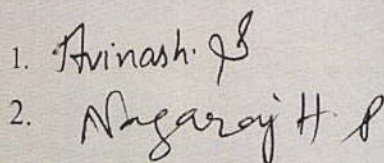 1. Avinash. S
2. Nagaraj H P